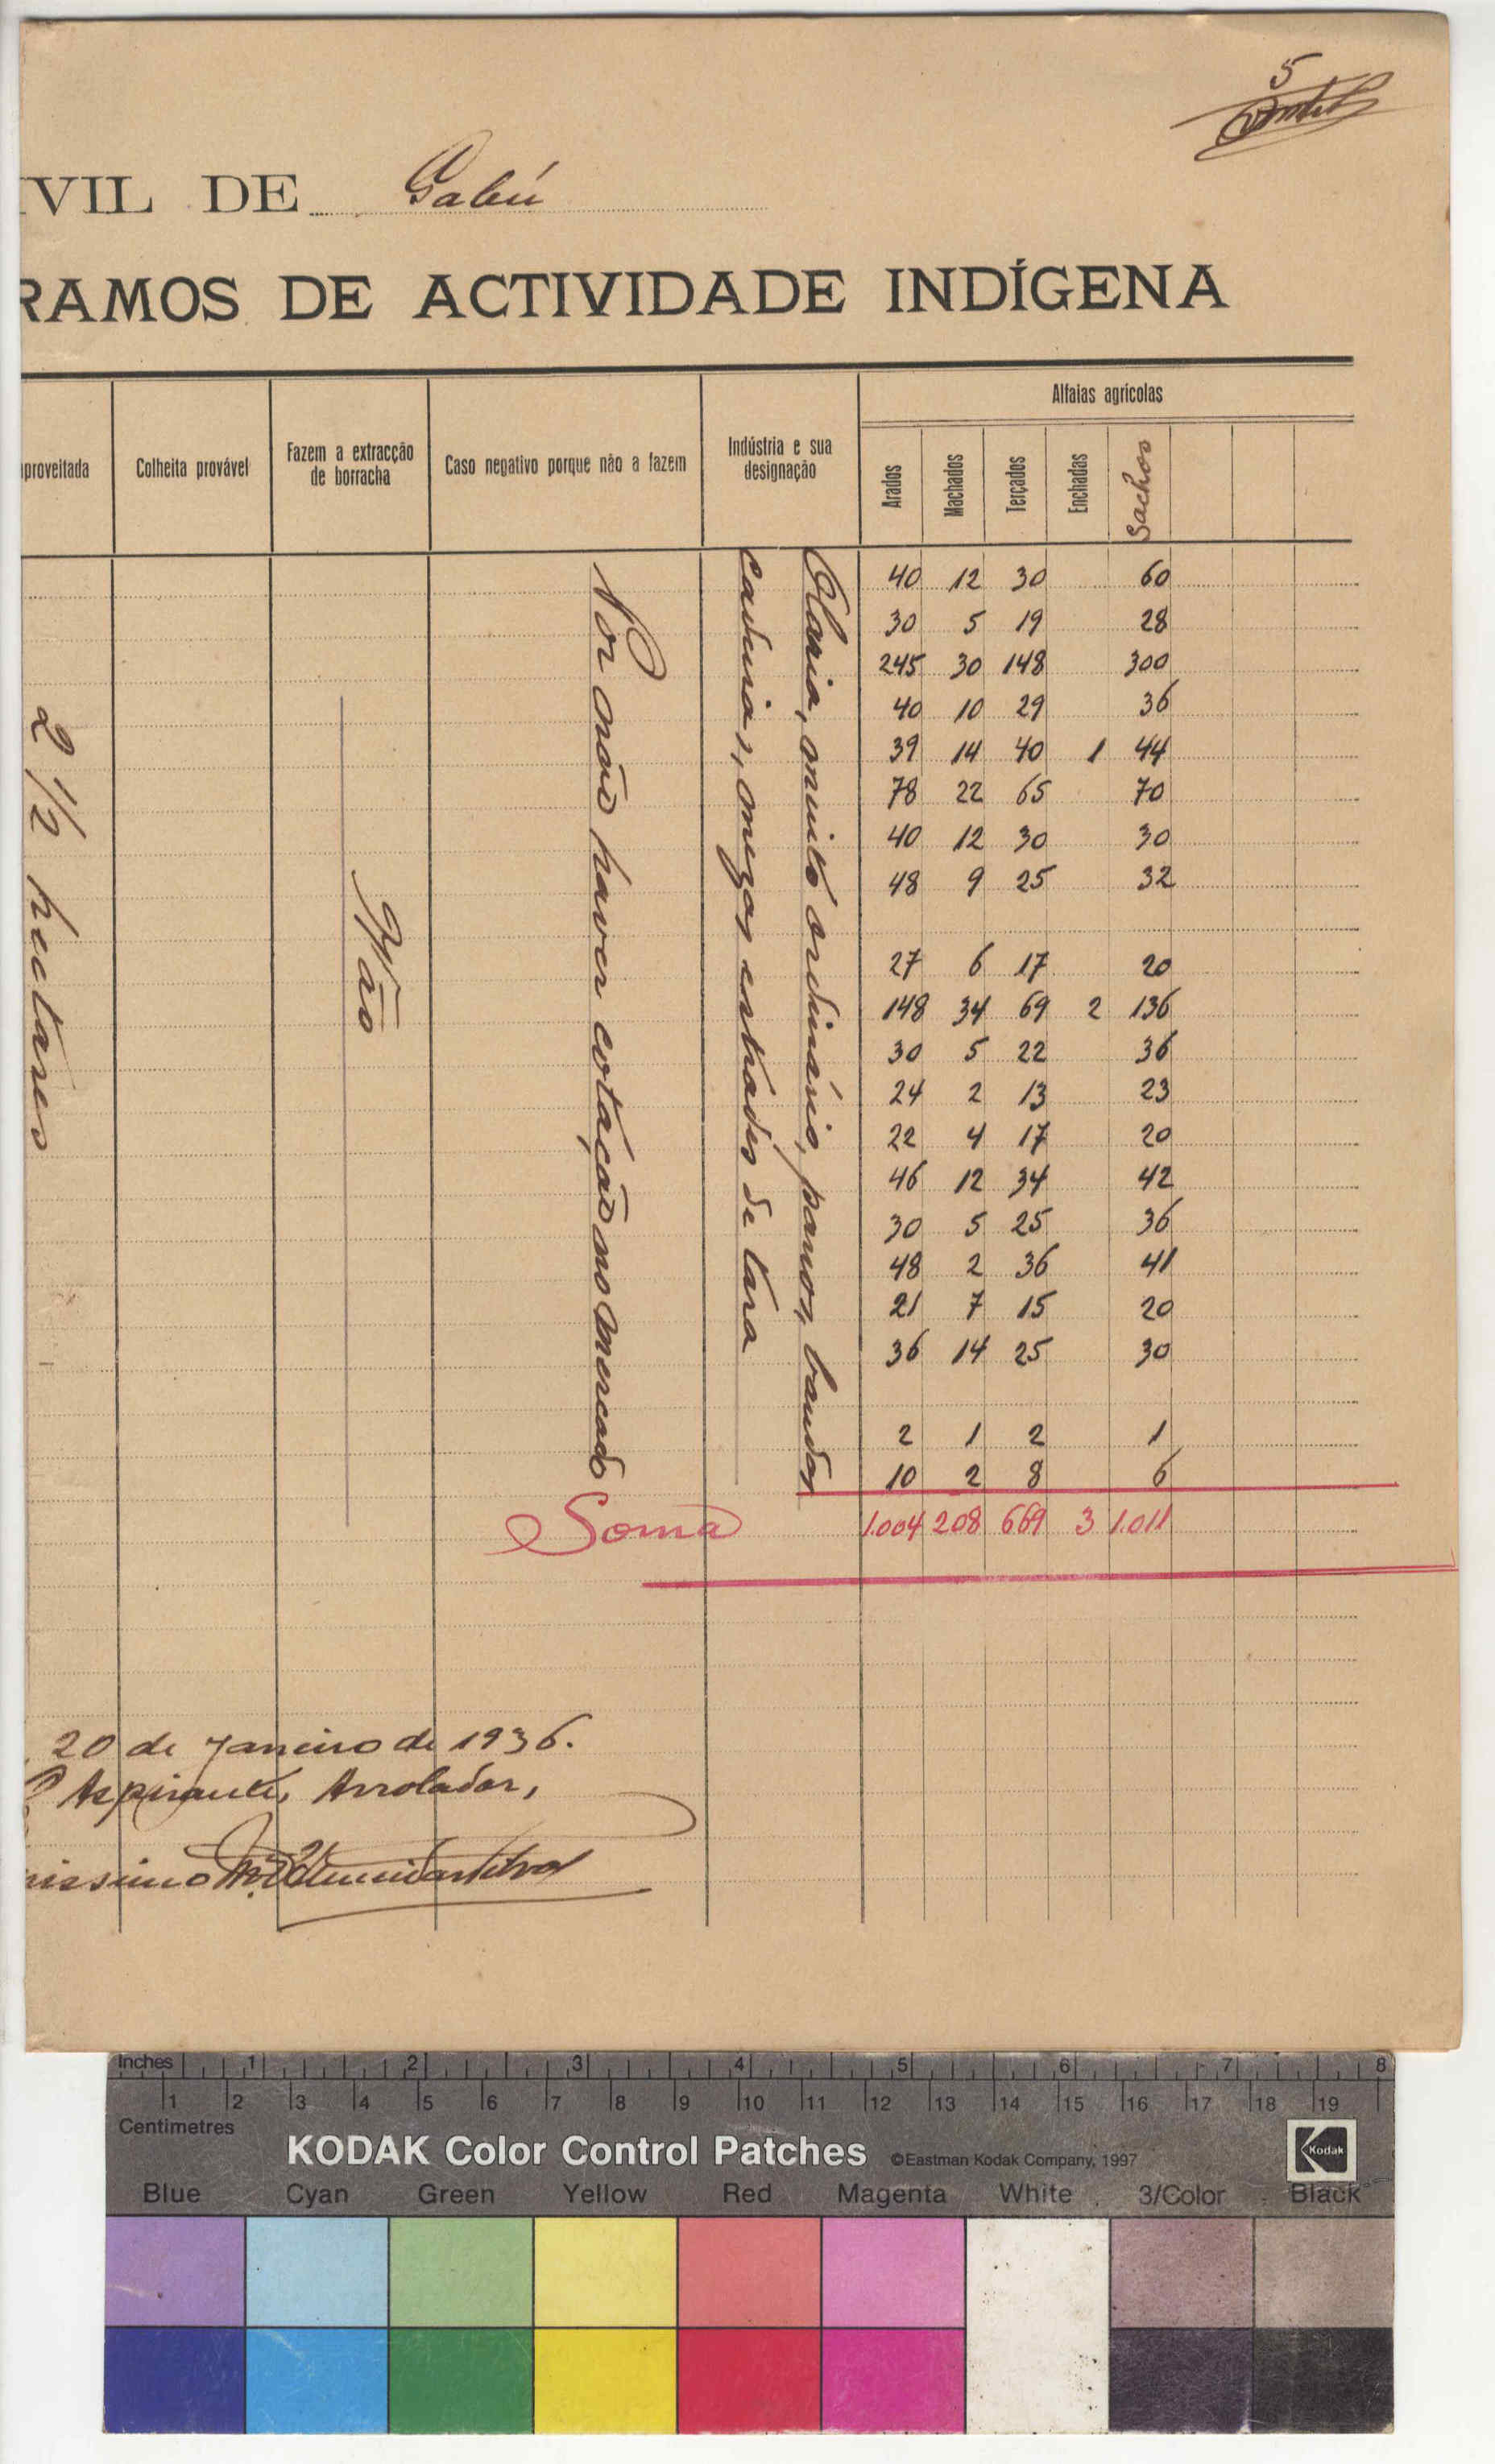 5
VIL DE Gabú
RAMOS DE ACTIVIDADE INDÍGENA
proveitada
Colheita provável
Fazem a extracção
de borracha
Caso negativo porque não a fazem
Indústria e sua
designação
Alfaias agrícolas
Arados
Machados
Terçados
Enchadas
Sachos
2 1/2 hectares
Não
Por não haver cotação no mercado
Olaria, muito ordinário, panos, baudos
cadeiras, mezas estrados de tara
40 12 30 60
30 5 19 28
245 30 148 300
40 10 29 36
39 14 40 1 44
78 22 65 70
40 12 30 30
48 9 25 32
27 6 17 20
148 34 69 2 136
30 5 22 36
24 2 13 23
22 4 17 20
46 12 34 42
30 5 25 36
48 2 36 41
21 7 15 20
36 14 25 30
2 1 2 1
10 2 8 6
Soma 1.004 208 669 3 1.011
20 de Janeiro de 1936.
O Aspirante, Arrolador,
Inches 1 2 3 4 5 6 7 8
1 2 3 4 5 6 7 8 9 10 11 12 13 14 15 16 17 18 19
Centimetres
KODAK Color Control Patches ©Eastman Kodak Company, 1997
Kodak
Blue Cyan Green Yellow Red Magenta White 3/Color Black